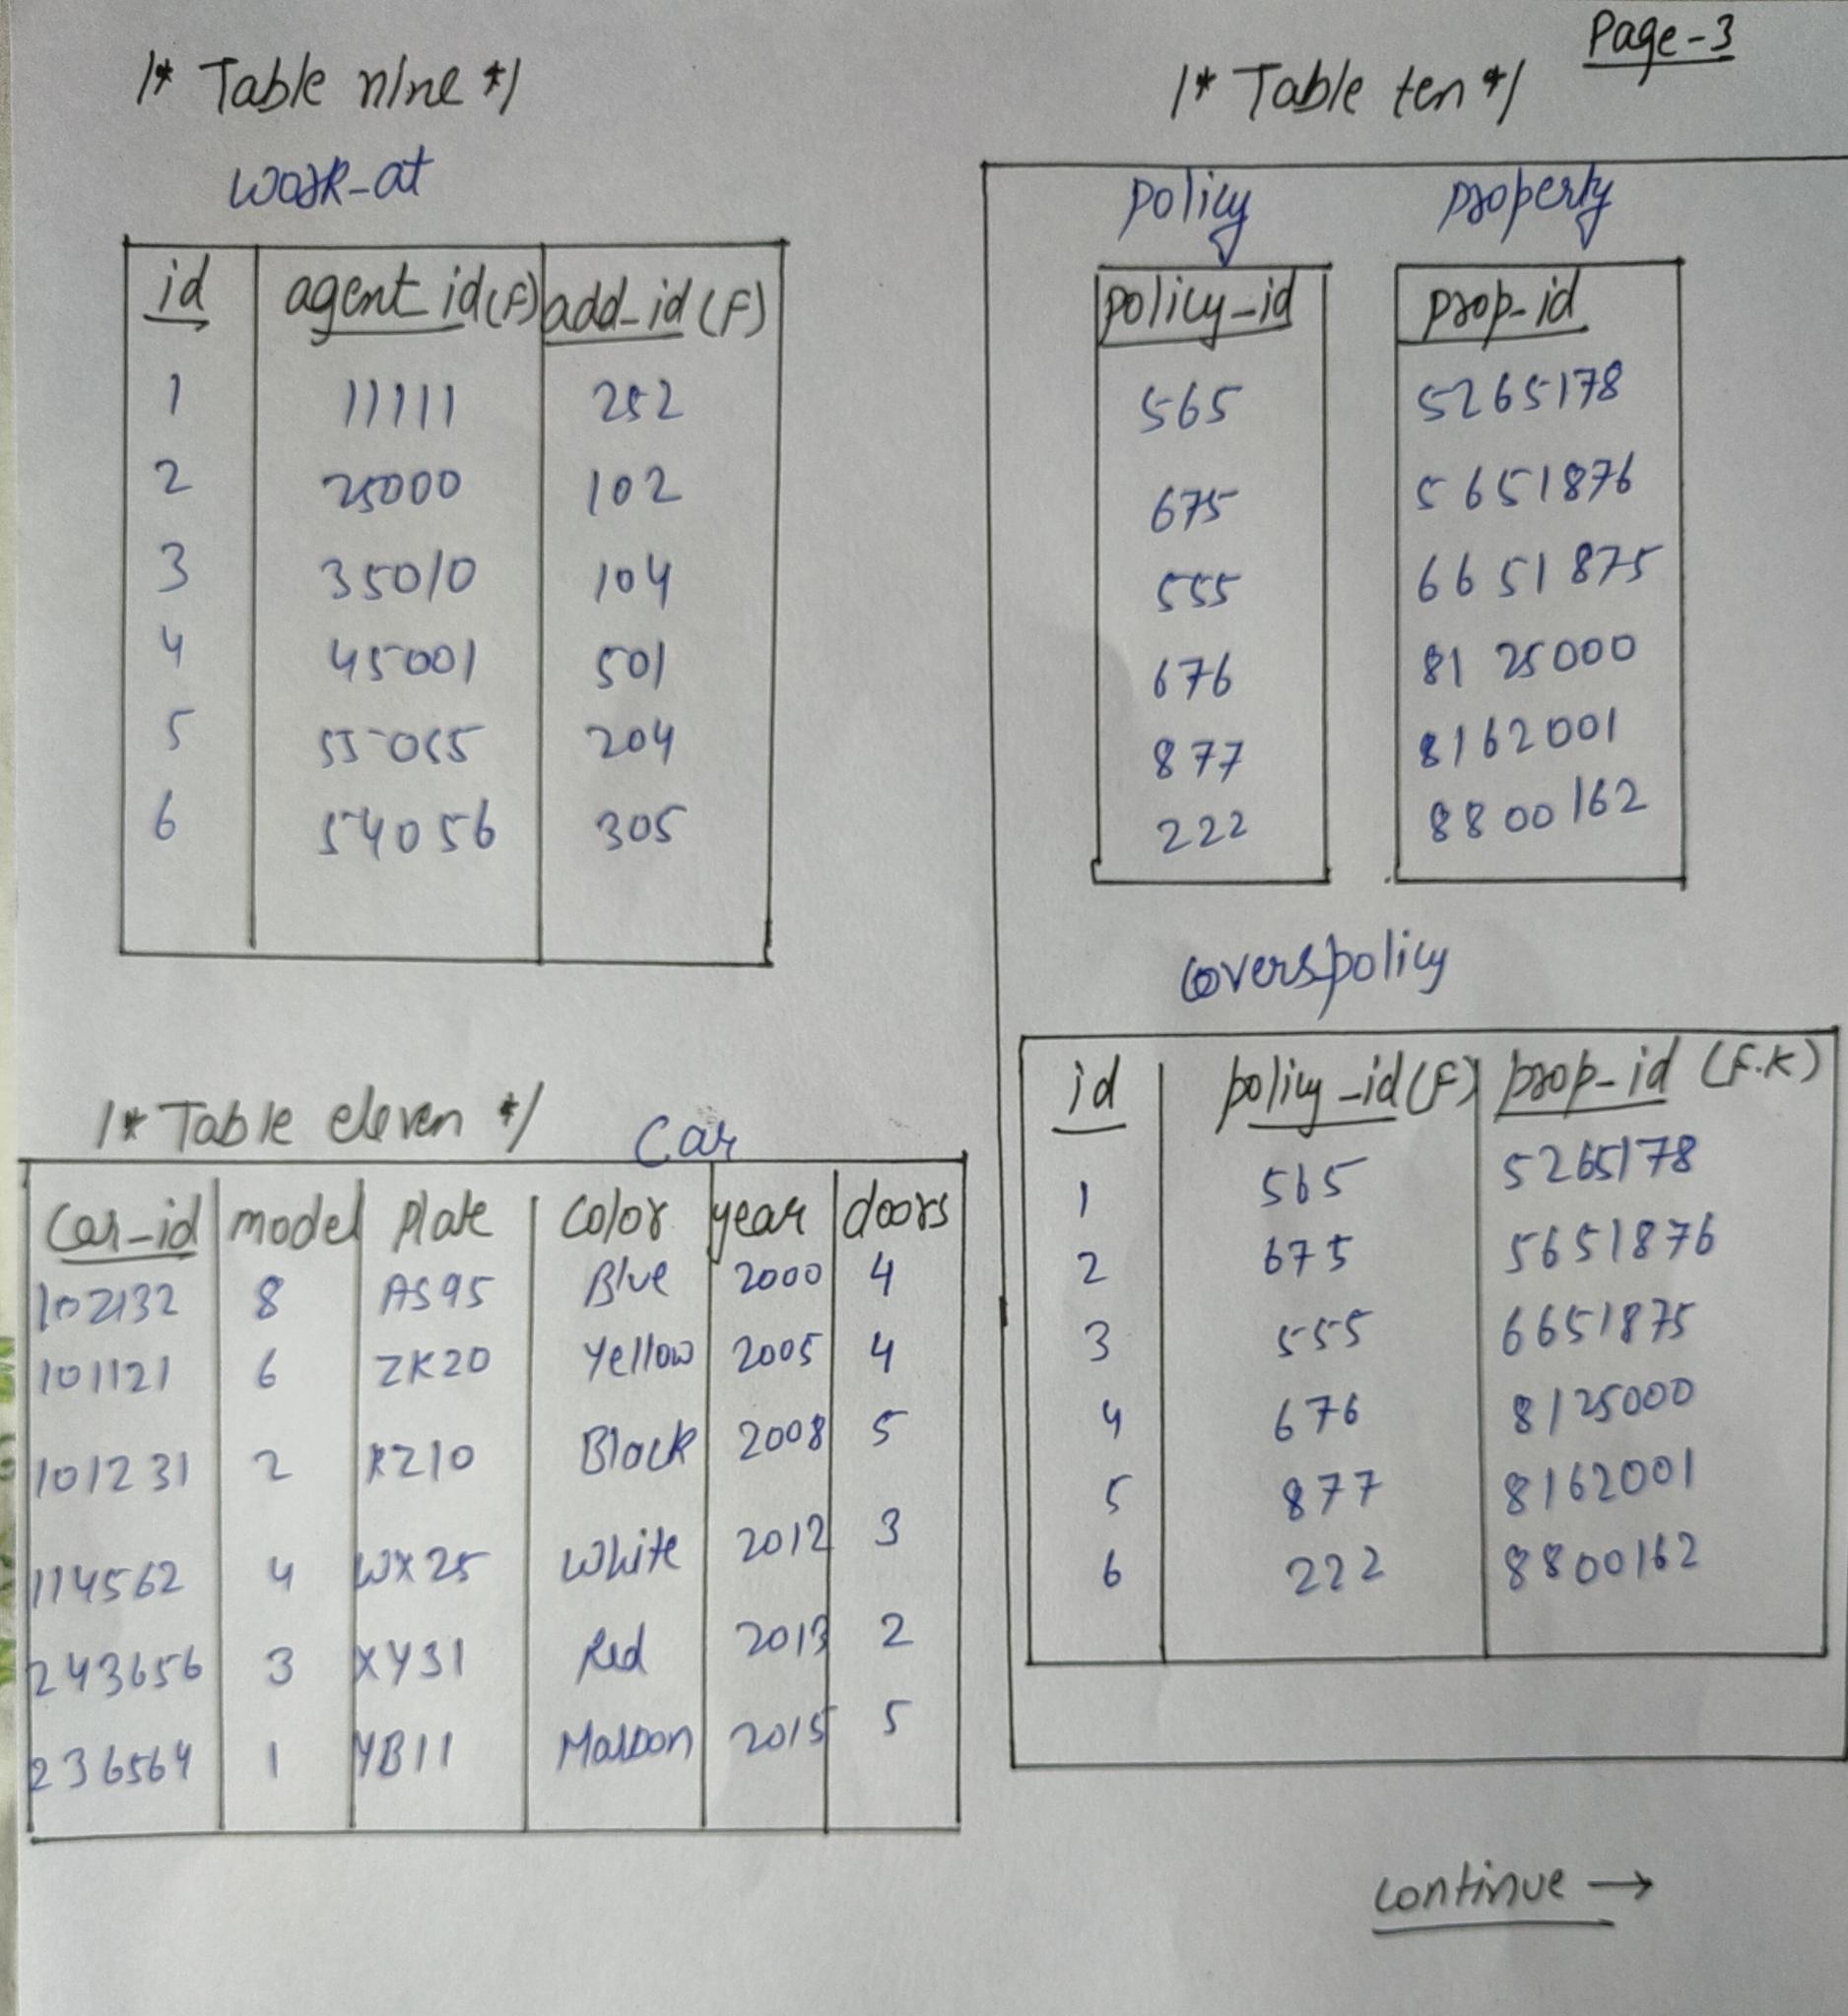 Page-3
/* Table nine */
work-at
id agent_id(F) add_id(F)
1 11111 252
2 25000 102
3 35010 104
4 45001 501
5 55055 204
6 54056 305
/* Table ten */
policy property
policy-id prop-id
565 5265178
675 5651876
555 6651875
676 8125000
877 8162001
222 8800162
coverspolicy
id policy-id(F) prop-id (F.K)
1 565 5265178
2 675 5651876
3 555 6651875
4 676 8125000
5 877 8162001
6 222 8800162
/* Table eleven */ Car
Car-id model Plate Color year doors
102132 8 AS95 Blue 2000 4
101121 6 ZK20 Yellow 2005 4
101231 2 XZ10 Black 2008 5
114562 4 WX25 White 2012 3
243656 3 XY31 Red 2013 2
236564 1 YB11 Maroon 2015 5
continue →